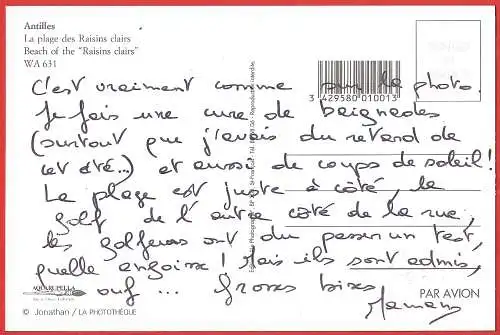 Antilles
La plage des Raisins clairs
Beach of the "Raisins clairs"
WA 631
C'est vraiment comme sur la photo.
Je fais une cure de baignades
(surtout que j'avais du retard de
cet été...) et aussi de coups de soleil!
La plage est juste à côté, le
golf de l'autre côté de la rue,
les golfeurs ont du passer un test,
quelle angoisse! Mais ils sont admis,
ouf... Grosses bises
Maman
3 429580 010013
AQUARUPELLA
PAR AVION
© Jonathan / LA PHOTOTHÈQUE